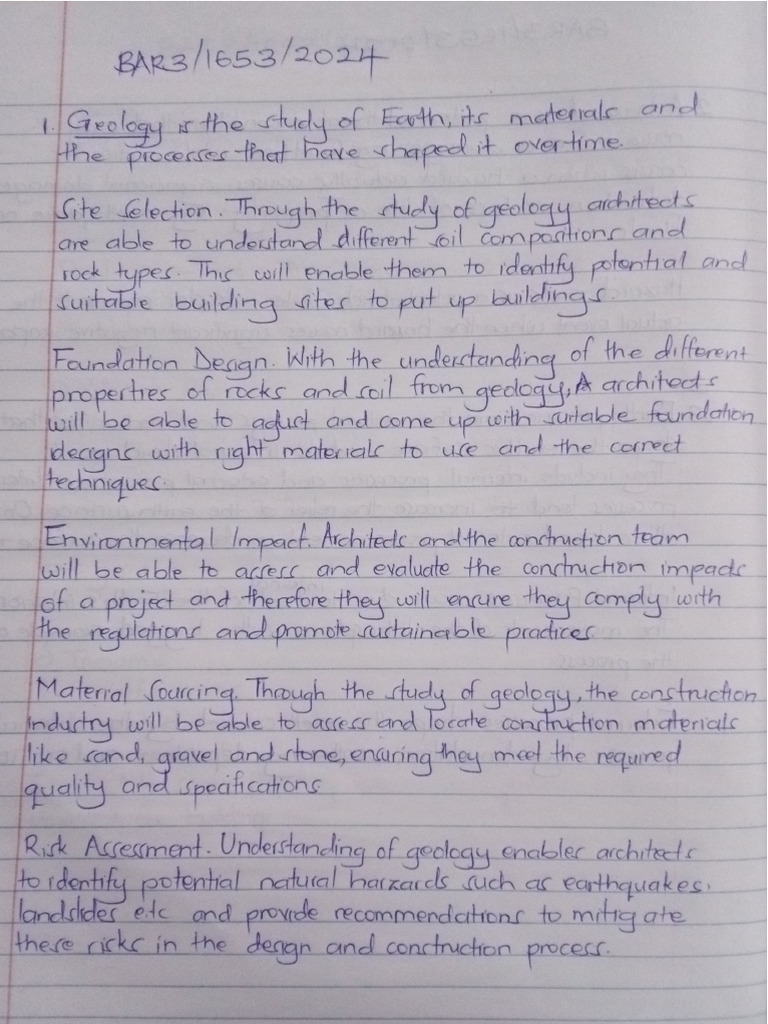 BAR3/1653/2024
1. Geology is the study of Earth, its materials and
the processes that have shaped it overtime.
Site Selection. Through the study of geology architects
are able to understand different soil compositions and
rock types. This will enable them to identify potential and
suitable building sites to put up buildings.
Foundation Design. With the understanding of the different
properties of rocks and soil from geology, A architects
will be able to adjust and come up with suitable foundation
designs with right materials to use and the correct
techniques.
Environmental Impact. Architects and the construction team
will be able to assess and evaluate the construction impacts
of a project and therefore they will ensure they comply with
the regulations and promote sustainable practices
Material Sourcing. Through the study of geology, the construction
industry will be able to assess and locate construction materials
like sand, gravel and stone, ensuring they meet the required
quality and specifications
Risk Assessment. Understanding of geology enables architects
to identify potential natural harzards such as earthquakes,
landslides etc and provide recommendations to mitigate
these risks in the design and construction process.